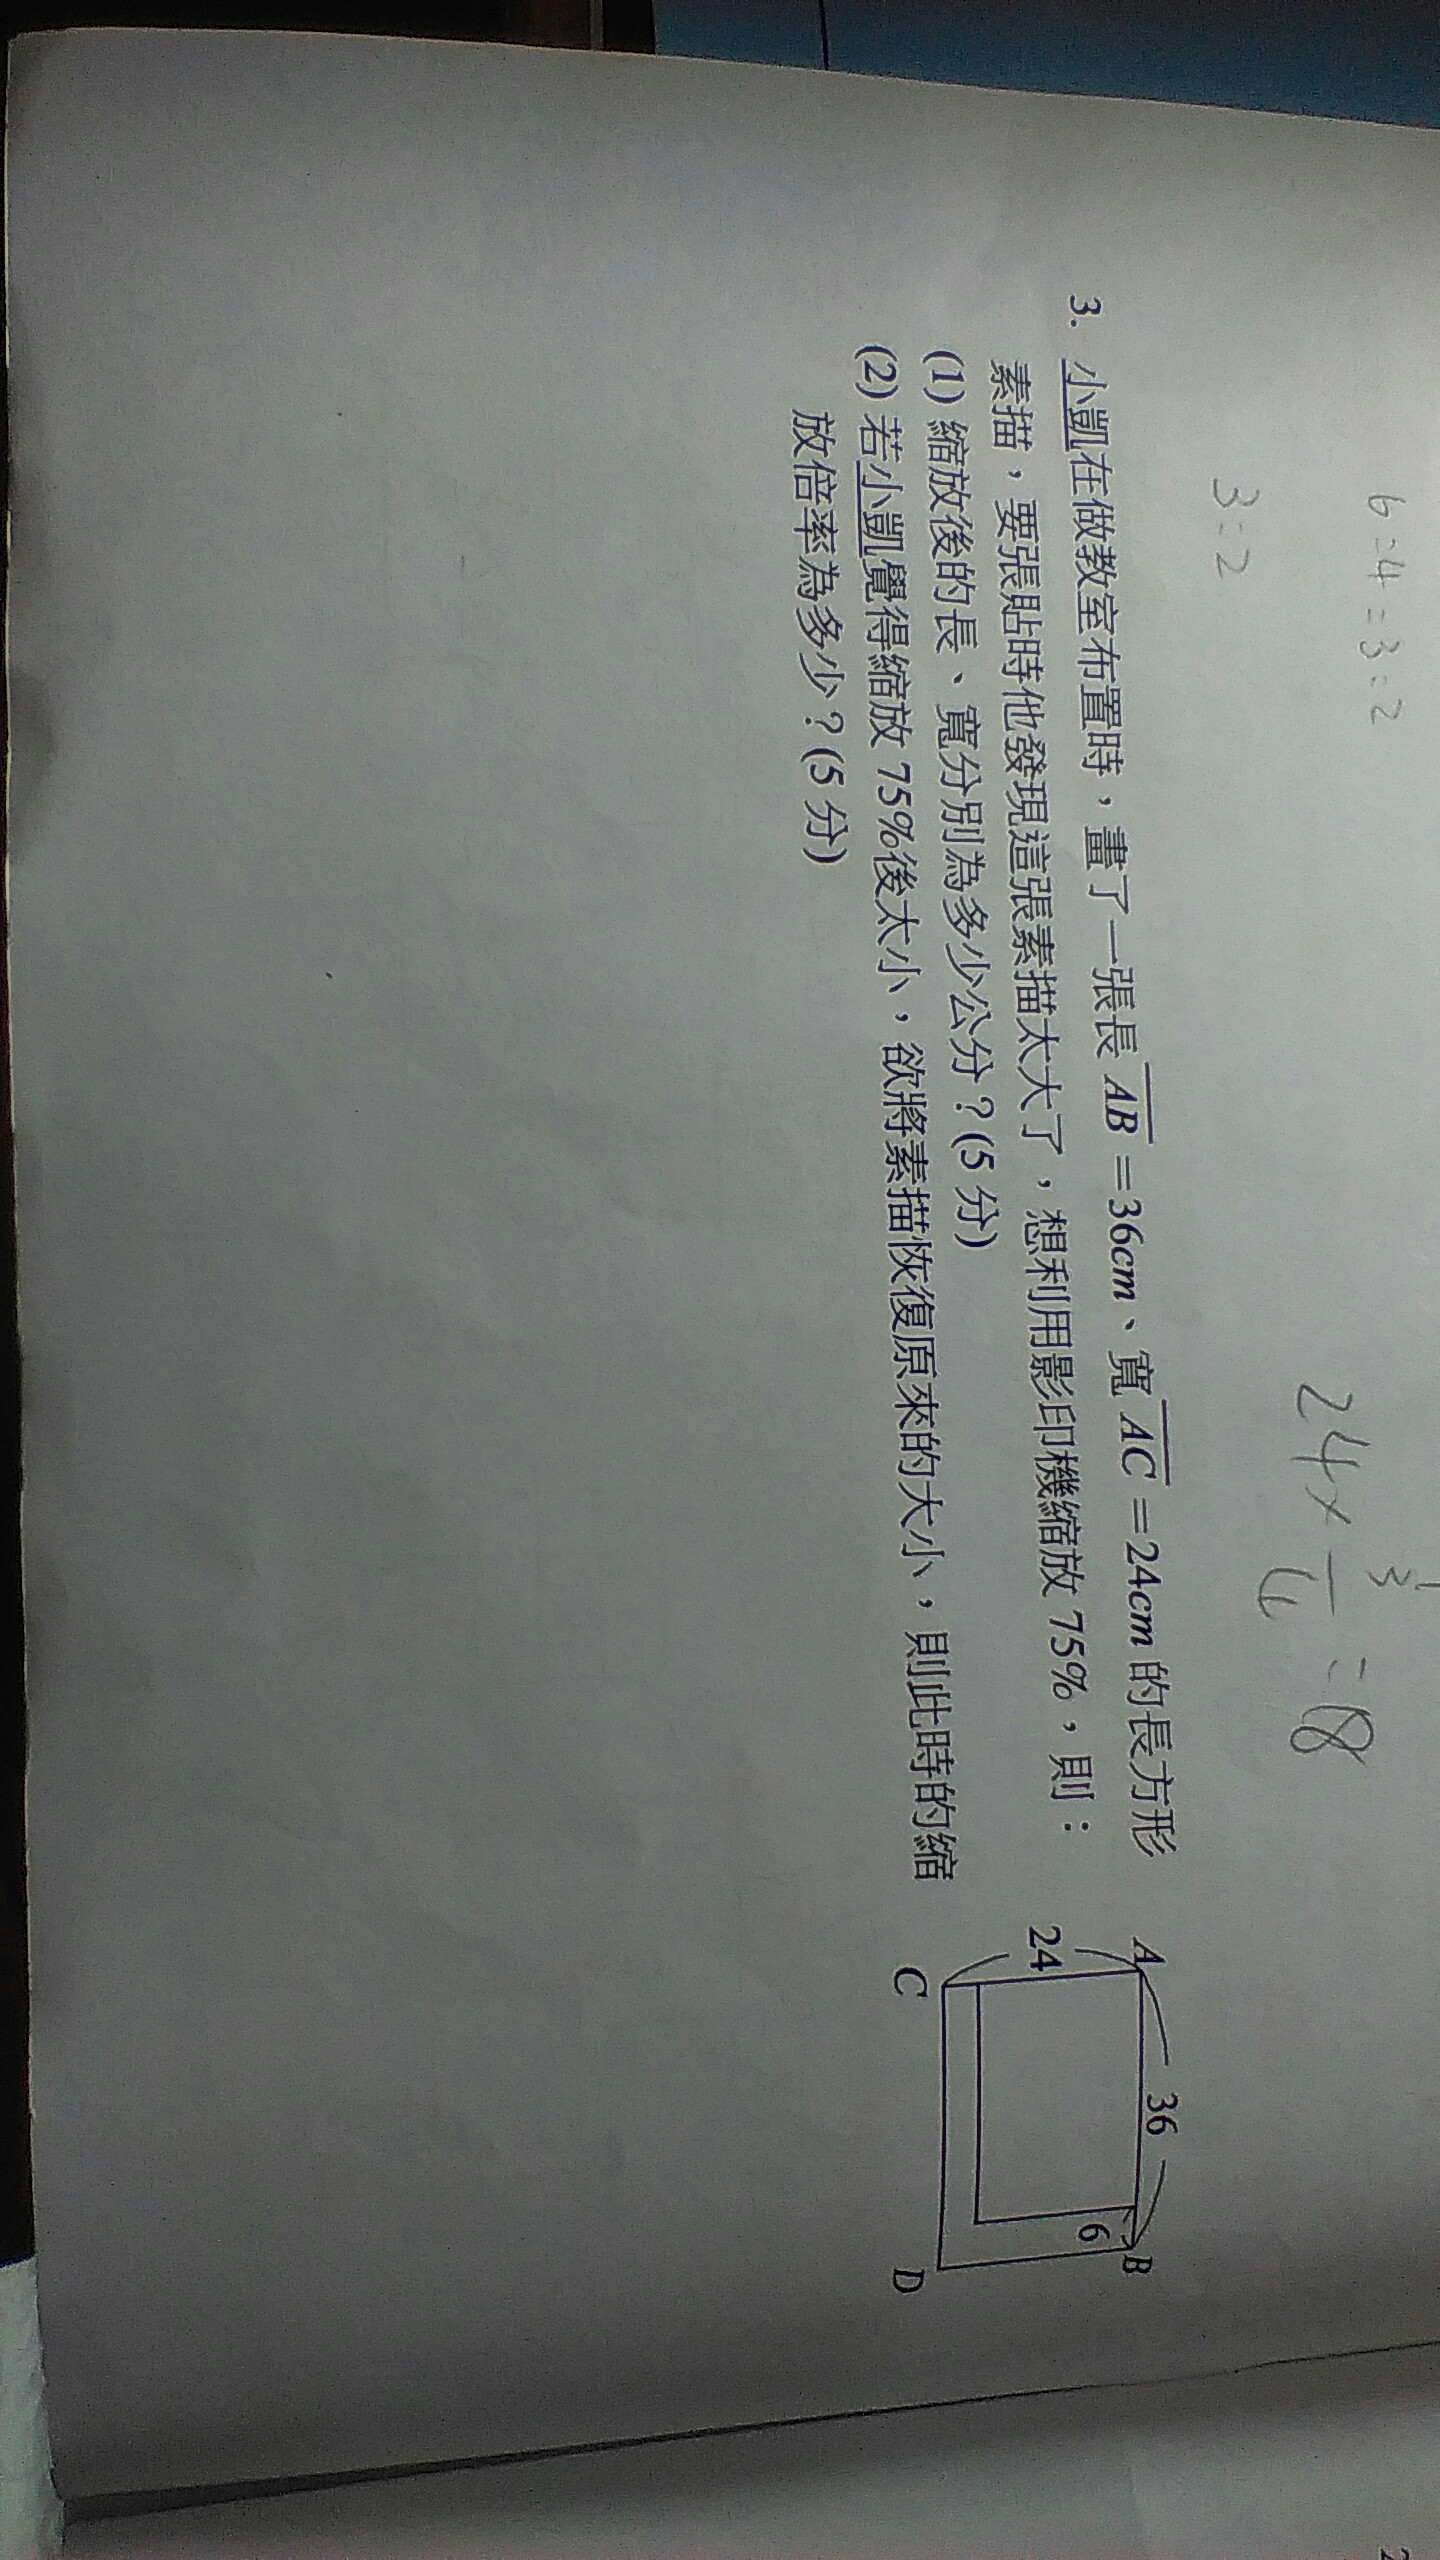 6:4=3:2
3:2
24× =18
3. 小凱在做教室布置時，畫了一張長 AB =36cm、寬 AC =24cm 的長方形
素描，要張貼時他發現這張素描太大了，想利用影印機縮放 75%，則：
(1) 縮放後的長、寬分別為多少公分？(5 分)
(2) 若小凱覺得縮放 75%後太小，欲將素描恢復原來的大小，則此時的縮
放倍率為多少？(5 分)
A
36
B
24
6
C
D